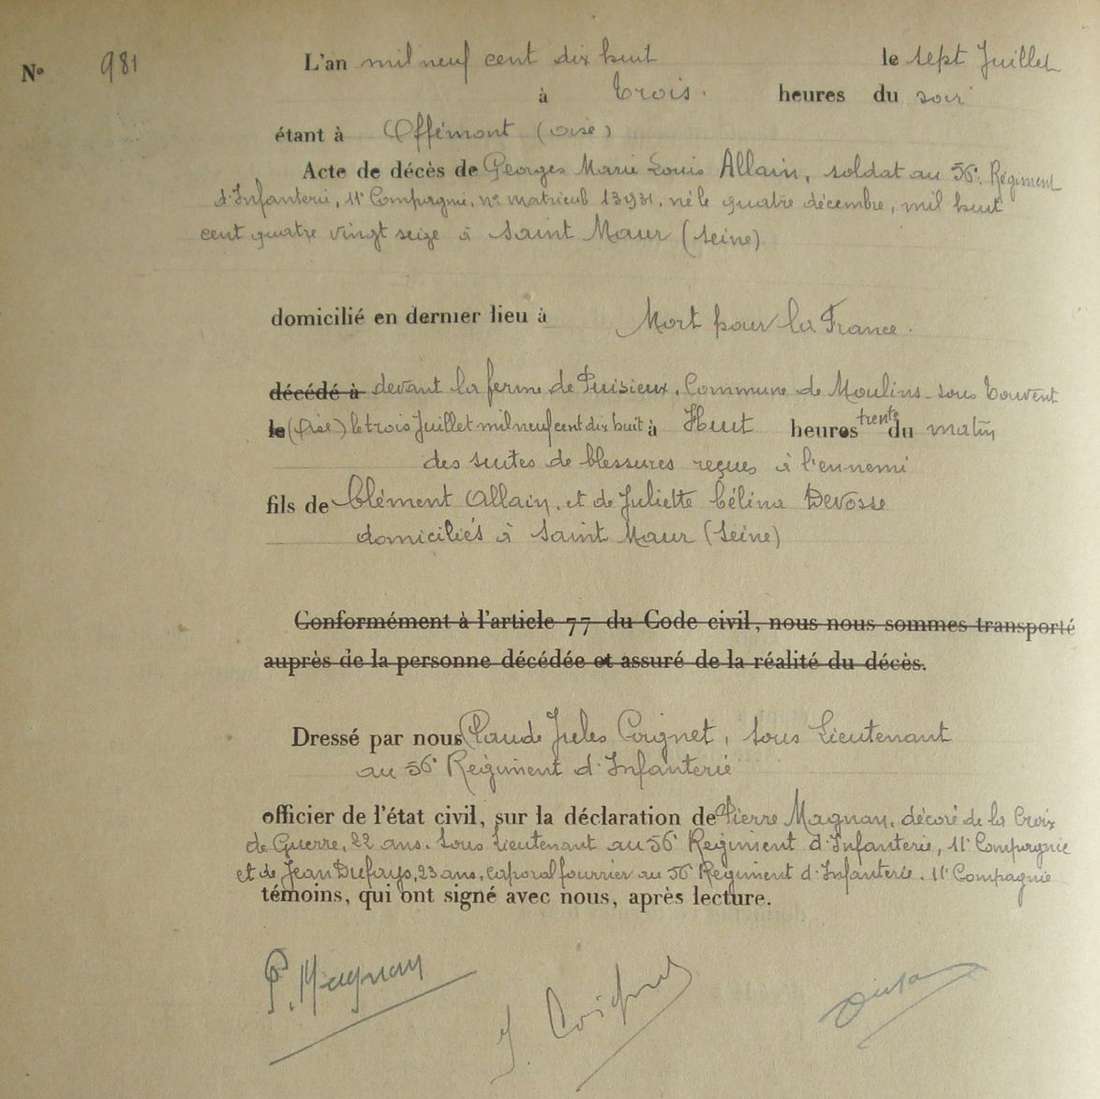 N° 981
L'an mil neuf cent dix huit le sept Juillet
à trois. heures du soir
étant à Offémont (oise)
Acte de décès de Georges Marie Louis Allain, soldat au 56e Régiment
d'Infanterie, 11e Compagnie, n° matricule 13931, né le quatre décembre, mil huit
cent quatre vingt seize à Saint Maur (Seine)
domicilié en dernier lieu à Mort pour la France.
décédé à devant la ferme de Puisieux, Commune de Moulins-sous Touvent
le (Oise) le trois Juillet mil neuf cent dix huit à Huit heures trente du matin
des suites de blessures reçues à l'ennemi
fils de Clément Allain, et de Juliette Célina Devosse
domiciliés à Saint Maur (Seine)
Conformément à l'article 77 du Code civil, nous nous sommes transporté
auprès de la personne décédée et assuré de la réalité du décès.
Dressé par nous Claude Jules Coignet, Sous Lieutenant
au 56e Régiment d'Infanterie
officier de l'état civil, sur la déclaration de Pierre Magnan, décoré de la Croix
de Guerre, 22 ans. Sous Lieutenant au 56e Régiment d'Infanterie, 11e Compagnie
et de Jean Dufays, 23 ans, caporal fourrier au 56e Régiment d'Infanterie. 11e Compagnie
témoins, qui ont signé avec nous, après lecture.
P. Magnan
J. Coignet